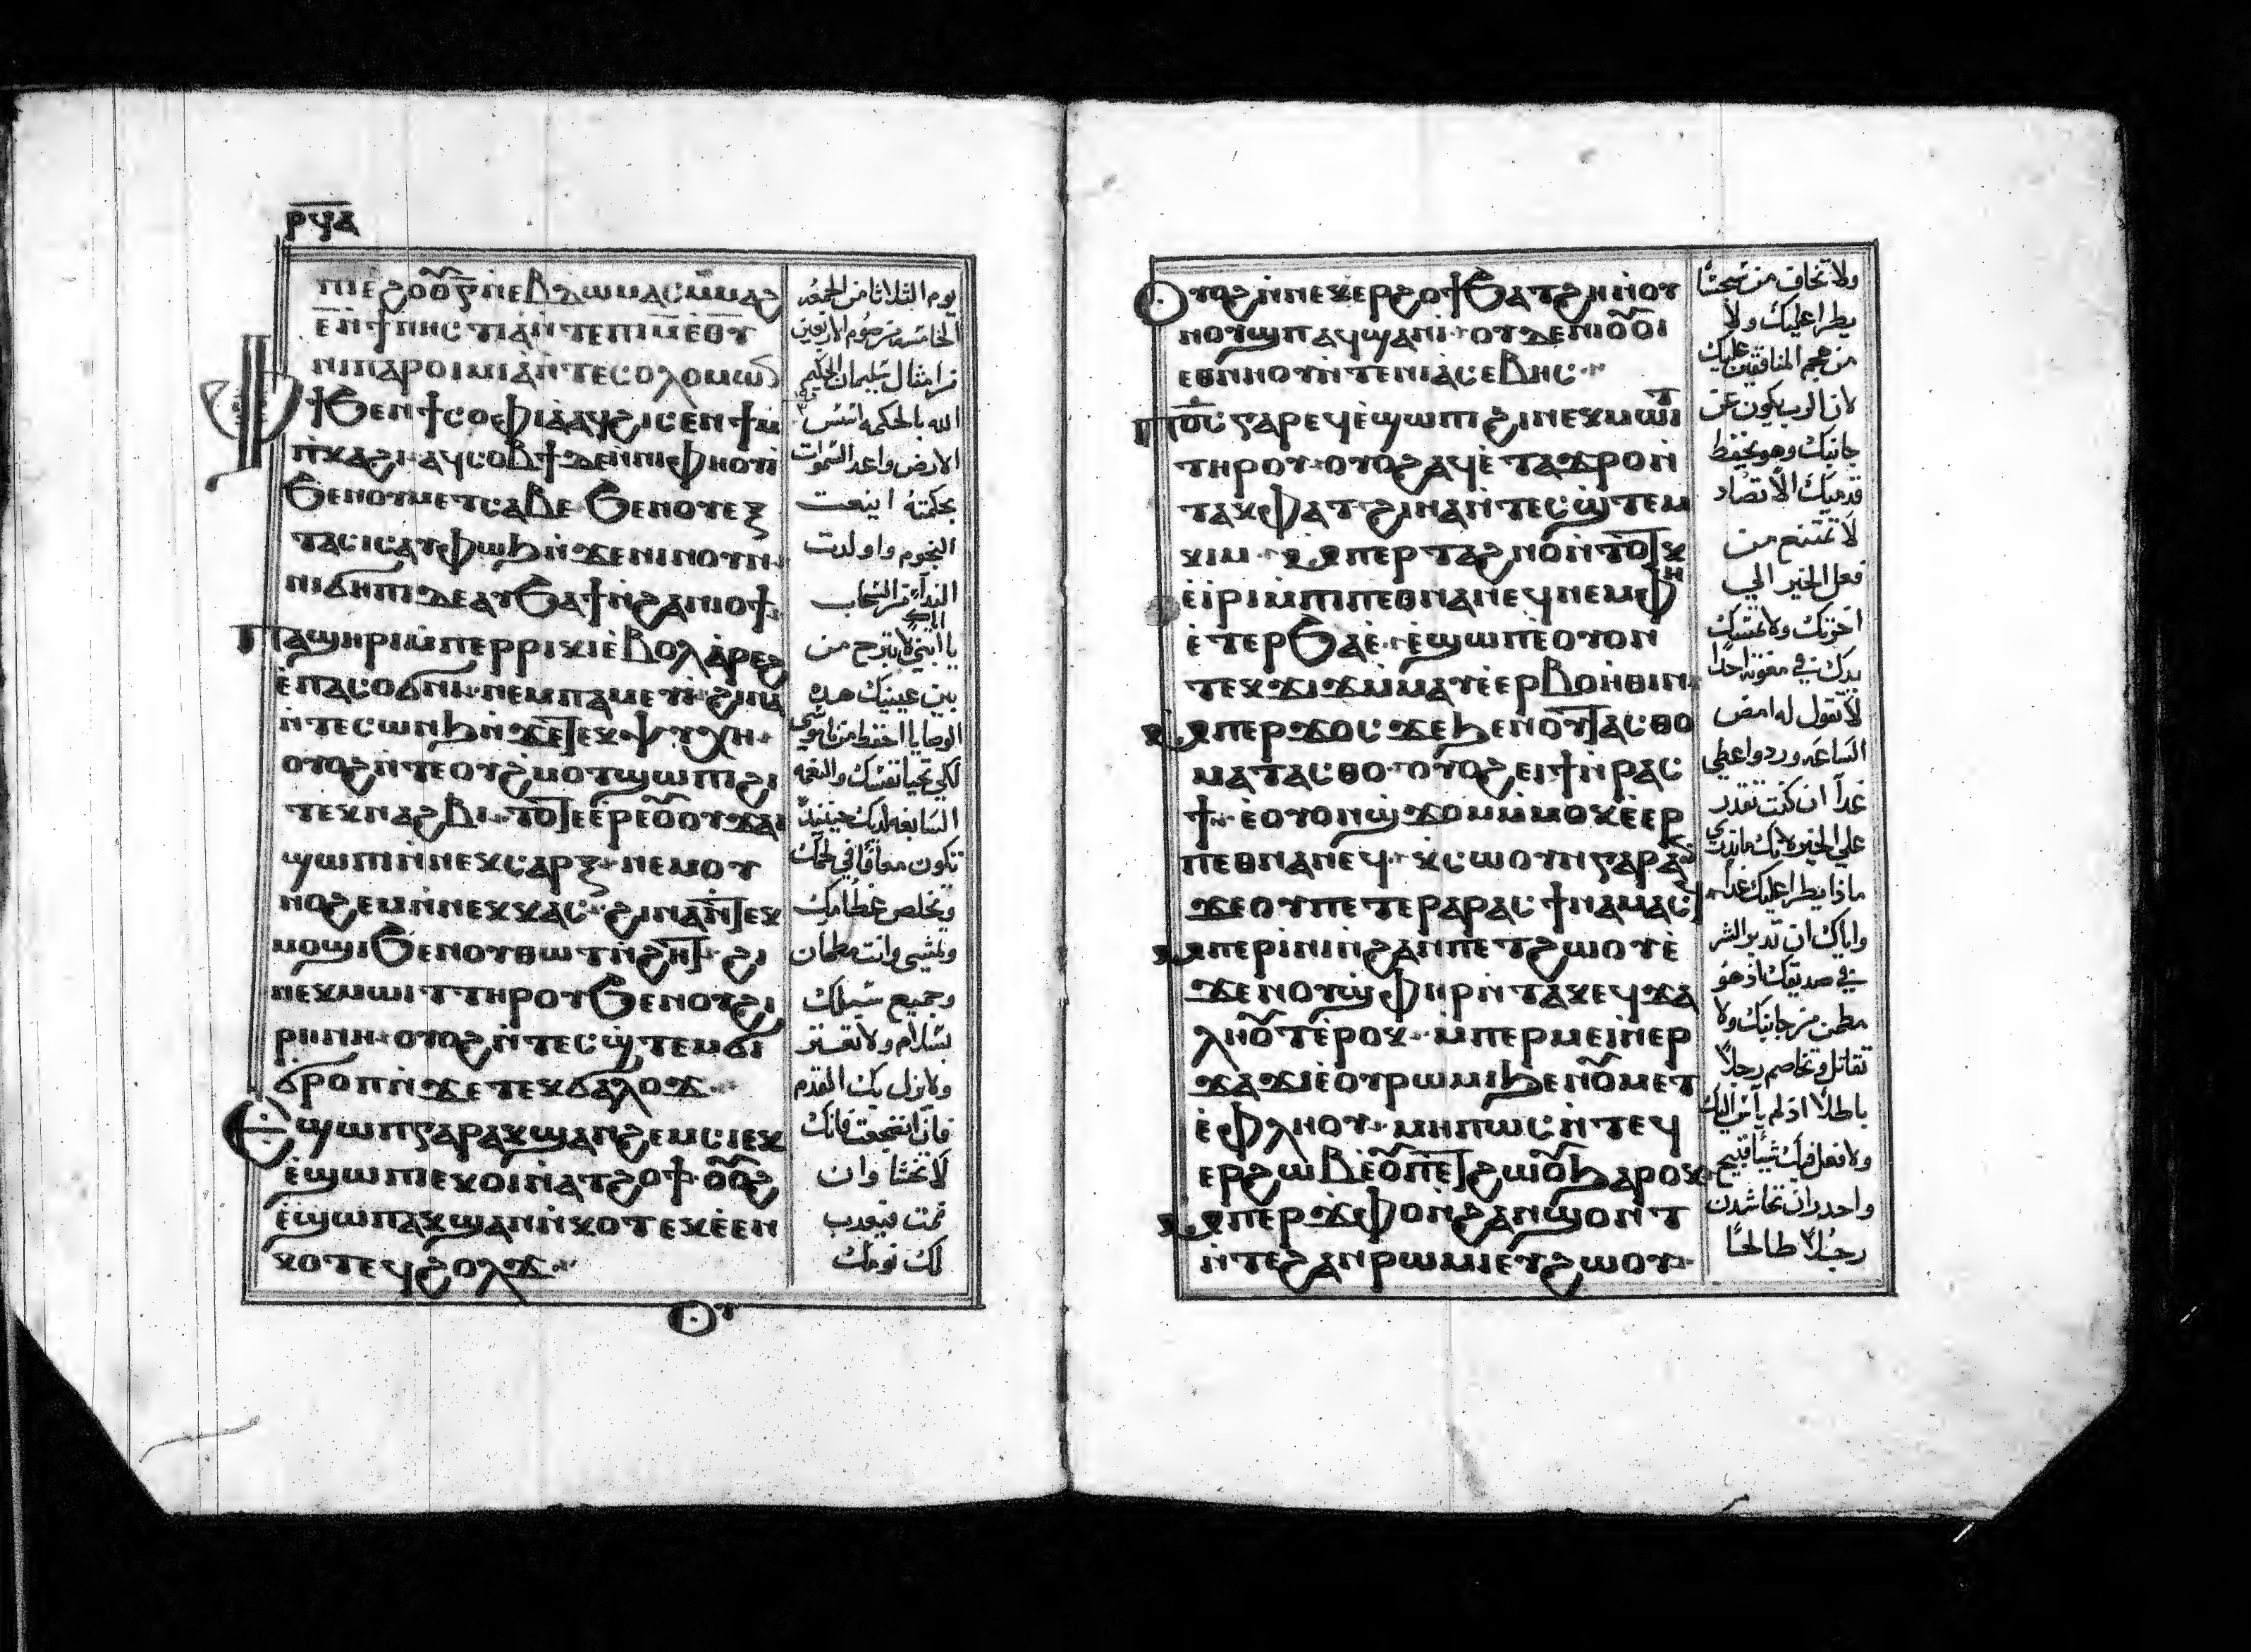 ⲣϥⲁ
ⲡⲓⲉϩⲟⲟⲩ ⲅ ⲛⲉⲃⲇⲱⲙⲁⲥ ⲙⲙⲁϩ
ⲉ ⲛϯⲛⲏⲥⲧⲓⲁ ⲛⲧⲉ ⲡⲓⲙ ⲉⲟⲩ
ⲛⲓⲡⲁⲣⲟⲓⲙⲓⲁ ⲛⲧⲉ ⲥⲟⲗⲟⲙⲱ
ⲫϯ ϧⲉⲛ ϯⲥⲟⲫⲓⲁ ⲁϥϩⲓⲥⲉⲛϯ ⲙ
ⲡⲕⲁϩⲓ ⲁϥⲥⲟⲃϯ ⲇⲉ ⲛⲛⲓⲫⲏⲟⲩⲓ
ϧⲉⲛ ⲟⲩⲙⲉⲧⲥⲁⲃⲉ ϧⲉⲛ ⲟⲩⲉⲝ
ⲧⲁⲥⲓⲥ ⲁⲩⲫⲱϧ ⲛϫⲉ ⲛⲓⲛⲟⲩⲛ
ⲛⲓϭⲏⲡⲓ ⲇⲉ ⲁⲩϧⲁϯ ⲛϩⲁⲛⲓⲟϯ
ⲡⲁϣⲏⲣⲓ ⲙⲡⲉⲣⲣⲓⲕⲓ ⲉⲃⲟⲗ ⲁⲣⲉϩ
ⲉⲡⲁⲥⲟϭⲛⲓ ⲛⲉⲙ ⲡⲁⲙⲉⲩⲓ ϩⲓⲛⲁ
ⲛⲧⲉⲥⲱⲛϧ ⲛϫⲉ ⲧⲉⲕⲯⲩⲭⲏ
ⲟⲩⲟϩ ⲛⲧⲉ ⲟⲩϩⲙⲟⲧ ϣⲱⲡⲓ ϩⲓ
ⲧⲉⲕⲛⲁϩⲃⲓ ⲧⲟⲧⲉ ⲉⲣⲉ ⲟⲩⲟⲩϫⲁⲓ
ϣⲱⲡⲓ ⲛⲛⲉⲕⲥⲁⲣⲝ ⲛⲉⲙ ⲟⲩ
ⲛⲟϩⲉⲙ ⲛⲛⲉⲕⲕⲁⲥ ϩⲓⲛⲁ ⲛⲧⲉⲕ
ⲙⲟϣⲓ ϧⲉⲛ ⲟⲩⲑⲱⲧ ⲛϩⲏⲧ ϩⲓ
ⲛⲉⲕⲙⲱⲓⲧ ⲧⲏⲣⲟⲩ ϧⲉⲛ ⲟⲩϩⲓ
ⲣⲏⲛⲏ ⲟⲩⲟϩ ⲛⲧⲉⲥϣⲧⲉⲙϭⲓ
ϭⲣⲟⲡ ⲛϫⲉ ⲧⲉⲕϭⲁⲗⲟϫ
ⲉϣⲱⲡ ⲅⲁⲣ ⲁⲕϣⲁⲛϩⲉⲙⲥⲓ ⲉⲕ
ⲉϣⲱⲡⲓ ⲉⲕⲟⲓ ⲛⲁⲧϩⲟϯ ⲟⲩⲟϩ
ⲉϣⲱⲡ ⲁⲕϣⲁⲛⲛⲕⲟⲧ ⲉⲕⲉⲉⲛ
ⲕⲟⲧ ⲉϥϩⲟⲗϫ
ⲟⲩ
يوم الثلاثا من الجمعه
الخامسه من صوم الاربعين
من امثال سليمان الحكيم
الله بالحكمه اسس
الارض واعد السموات
بحكمته اينعت
النجوم واولدت
النداء من السحاب
يا ابني لا تبرح من
بين عينيك هذه
الوصايا احفظ
لكي تحيا نفسك والنعمه
السابغه لديك حينئذ
تكون معافا في لحمك
وتخلص عظامك
وتمشي وانت مطمان
وجميع سبلك
بسلام ولا تعسر
ولا تزل بك القدم
فان انضجعت فانك
لا تخشا وان
نمت فيعدب
لك نومك
ⲟⲩⲟϩ ⲛⲛⲉⲕⲉⲣϩⲟϯ ϧⲁⲧϩⲏ ⲛⲟⲩ
ⲛⲟⲩϣⲡ ⲁϥϣⲁⲛⲓ ⲟⲩⲇⲉ ⲛⲓⲟⲟⲓ
ⲉⲑⲛⲏⲟⲩ ⲛⲧⲉ ⲛⲓⲁⲥⲉⲃⲏⲥ
ⲡⲟⲥ ⲅⲁⲣ ⲉϥⲉϣⲱⲡⲓ ϩⲓ ⲛⲉⲕⲙⲱⲓⲧ
ⲧⲏⲣⲟⲩ ⲟⲩⲟϩ ⲁϥⲉⲧⲁϫⲣⲟ ⲛ
ⲧⲁⲕⲫⲁⲧ ϩⲓⲛⲁ ⲛⲧⲉⲥϣⲧⲉⲙ
ⲕⲓⲙ ⲙⲡⲉⲣⲧⲁϩⲛⲟ ⲛⲧⲟⲧⲕ
ⲉⲓⲣⲓ ⲙⲡⲓⲡⲉⲑⲛⲁⲛⲉϥ ⲛⲉⲙ ⲫⲏ
ⲉⲧⲉⲣϧⲁⲉ ⲉϣⲱⲡ ⲉⲟⲩⲟⲛ
ⲧⲉⲕϫⲓϫ ⲙⲙⲁⲩ ⲉⲉⲣⲃⲟⲏⲑⲓⲛ
ⲙⲡⲉⲣϫⲟⲥ ϫⲉ ϧⲉⲛ ⲟⲩⲧⲁⲥⲑⲟ
ⲙⲁⲧⲁⲥⲑⲟ ⲟⲩⲟϩ ⲉⲓϯ ⲛⲣⲁⲥ
ϯ ⲉⲟⲩⲟⲛ ϣϫⲟⲙ ⲙⲙⲟⲕ ⲉⲉⲣ
ⲡⲉⲑⲛⲁⲛⲉϥ ⲕⲥⲱⲟⲩⲛ ⲅⲁⲣ ⲁⲛ
ϫⲉ ⲟⲩ ⲡⲉⲧⲉⲣⲁ ⲣⲁⲥϯ ⲛⲁⲙⲁⲥϥ
ⲙⲡⲉⲣⲓⲛⲓ ⲛϩⲁⲛⲡⲉⲧϩⲱⲟⲩ ⲉ
ϫⲉⲛ ⲟⲩϣⲫⲏⲣ ⲛⲧⲁⲕ ⲉϥϫⲁ
ⲗⲏⲟⲩⲧ ⲉⲣⲟⲕ ⲙⲡⲉⲣⲙⲉⲓ ⲛⲉⲣ
ϫⲁϫⲓ ⲉⲟⲩⲣⲱⲙⲓ ϧⲉⲛ ⲟⲩⲙⲉⲧ
ⲉⲫⲗⲏⲟⲩ ⲙⲏⲡⲱⲥ ⲛⲧⲉϥ
ⲉⲣϩⲱⲃ ⲉⲟⲩⲡⲉⲧϩⲱⲟⲩ ϧⲁⲣⲟⲕ
ⲙⲡⲉⲣϫⲫⲟ ⲛϩⲁⲛϣⲟⲛⲧ
ⲛⲧⲉ ϩⲁⲛⲣⲱⲙⲓ ⲉⲩϩⲱⲟⲩ
ولا تخاف من
يطرا عليك ولا
من هجم المنافقين عليك
لان الرب يكون عن
جانبك وهو يحفظ
قدميك الا تصاد
لا تمتنع من
فعل الخير الي
احزنك ولا تمسك
يدك في معونة احدا
لا تقول له امض
الساعه ورد واعطي
غدا ان كنت تقدر
علي الخير لانك ما تدري
ماذا يطرا عليك غدا
واياك ان تدبر الشر
في صديقك اذ هو
مطمن من جانبك ولا
تقاتل وتخاصم رجلا
باطلا اذ لم ياتي اليك
ولا فعل فيك شيا قبيح
واحدر ان
رجلا طالحا